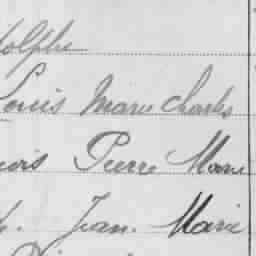 dolphe
Louis Marie Charles
Pierre Marie
Jean. Marie